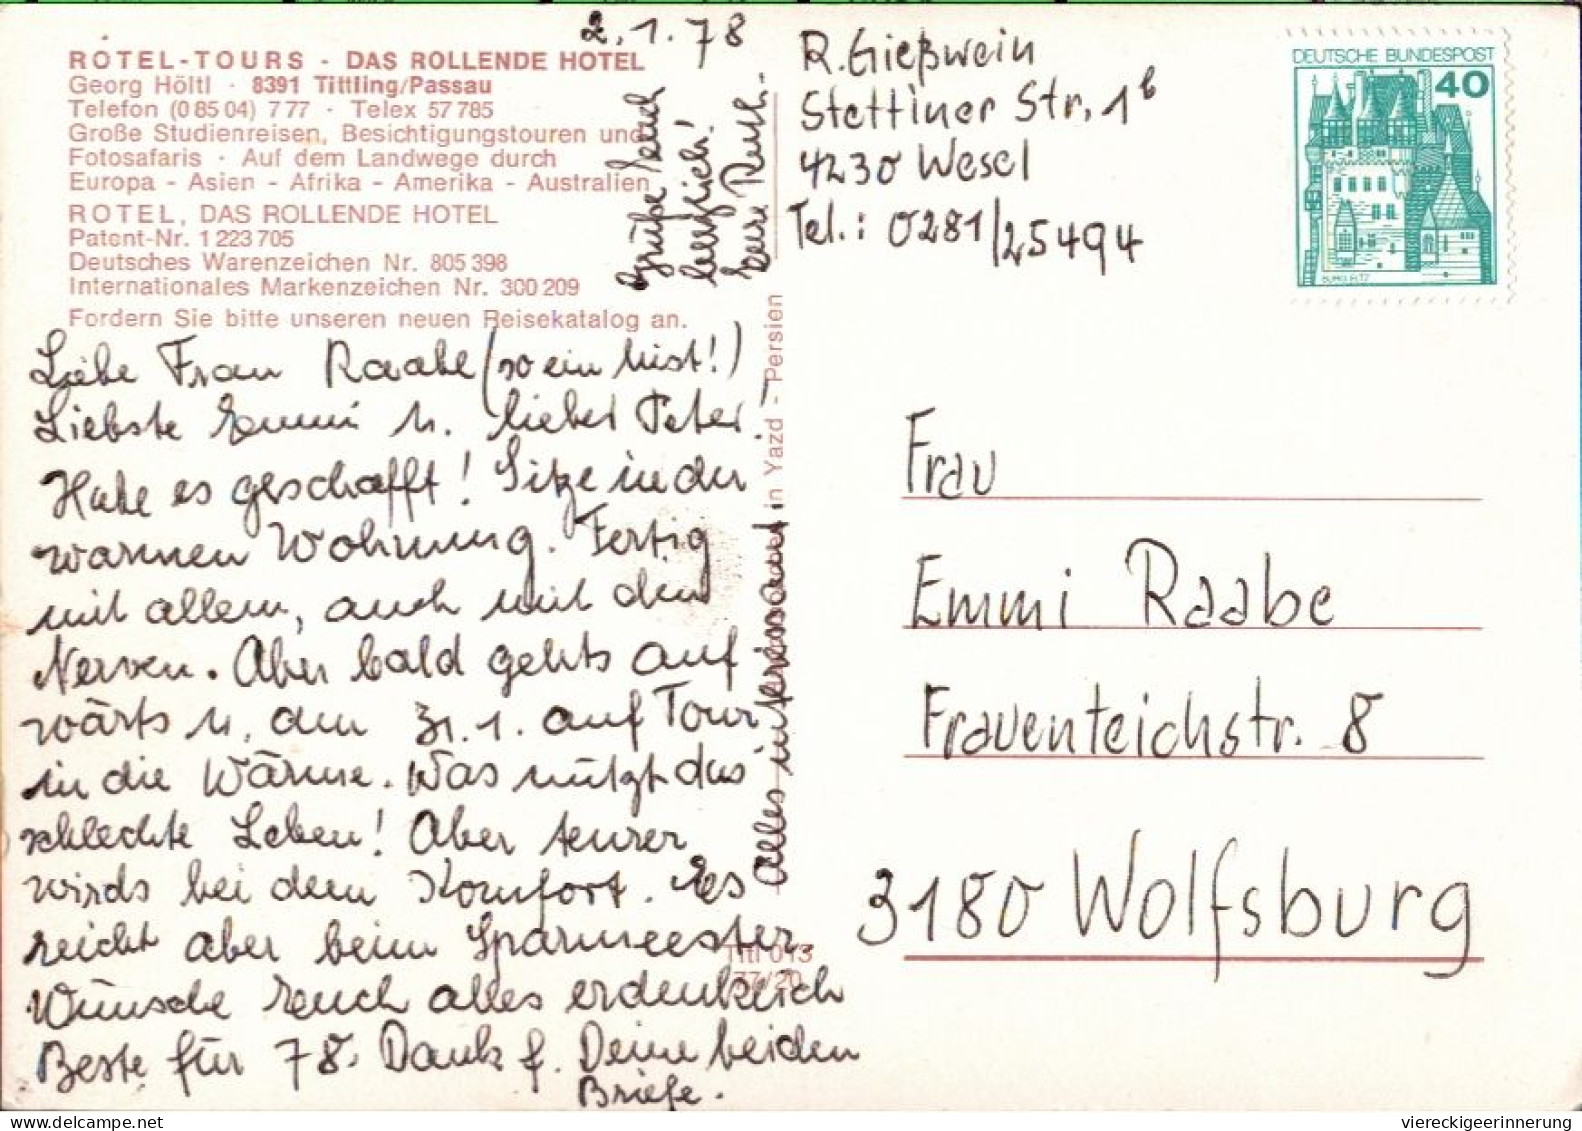 2.1.78
ROTEL-TOURS - DAS ROLLENDE HOTEL
Georg Höltl · 8391 Tittling/Passau
Telefon (0 85 04) 7 77 · Telex 57 785
Große Studienreisen, Besichtigungstouren und
Fotosafaris · Auf dem Landwege durch
Europa - Asien - Afrika - Amerika - Australien
ROTEL, DAS ROLLENDE HOTEL
Patent-Nr. 1 223 705
Deutsches Warenzeichen Nr. 805 398
Internationales Markenzeichen Nr. 300 209
Fordern Sie bitte unseren neuen Reisekatalog an.
Liebe Frau Raabe (so ein Mist!)
Liebste Emmi u. lieber Peter!
Habe es geschafft! Sitze in der
warmen Wohnung. Fertig
mit allem, auch mit den
Nerven. Aber bald gehts auf
wärts u. den 31.1. auf Tour
in die Wärme. Was nützt das
schlechte Leben! Aber teurer
wirds bei dem Komfort. Es
reicht aber beim Sparmeester.
Wünsche Euch alles erdenklich
Beste für 78. Dank f. Deine beiden
Briefe.
Alles interessant.
Grüße Euch
herzlich!
Eure Ruth.
in Yazd - Persien
Titl 013
77/20
R. Gießwein
Stettiner Str. 1b
4230 Wesel
Tel.: 0281/25494
DEUTSCHE BUNDESPOST
40
BURG ELTZ
Frau
Emmi Raabe
Frauenteichstr. 8
3180 Wolfsburg
viereckigeerinnerung